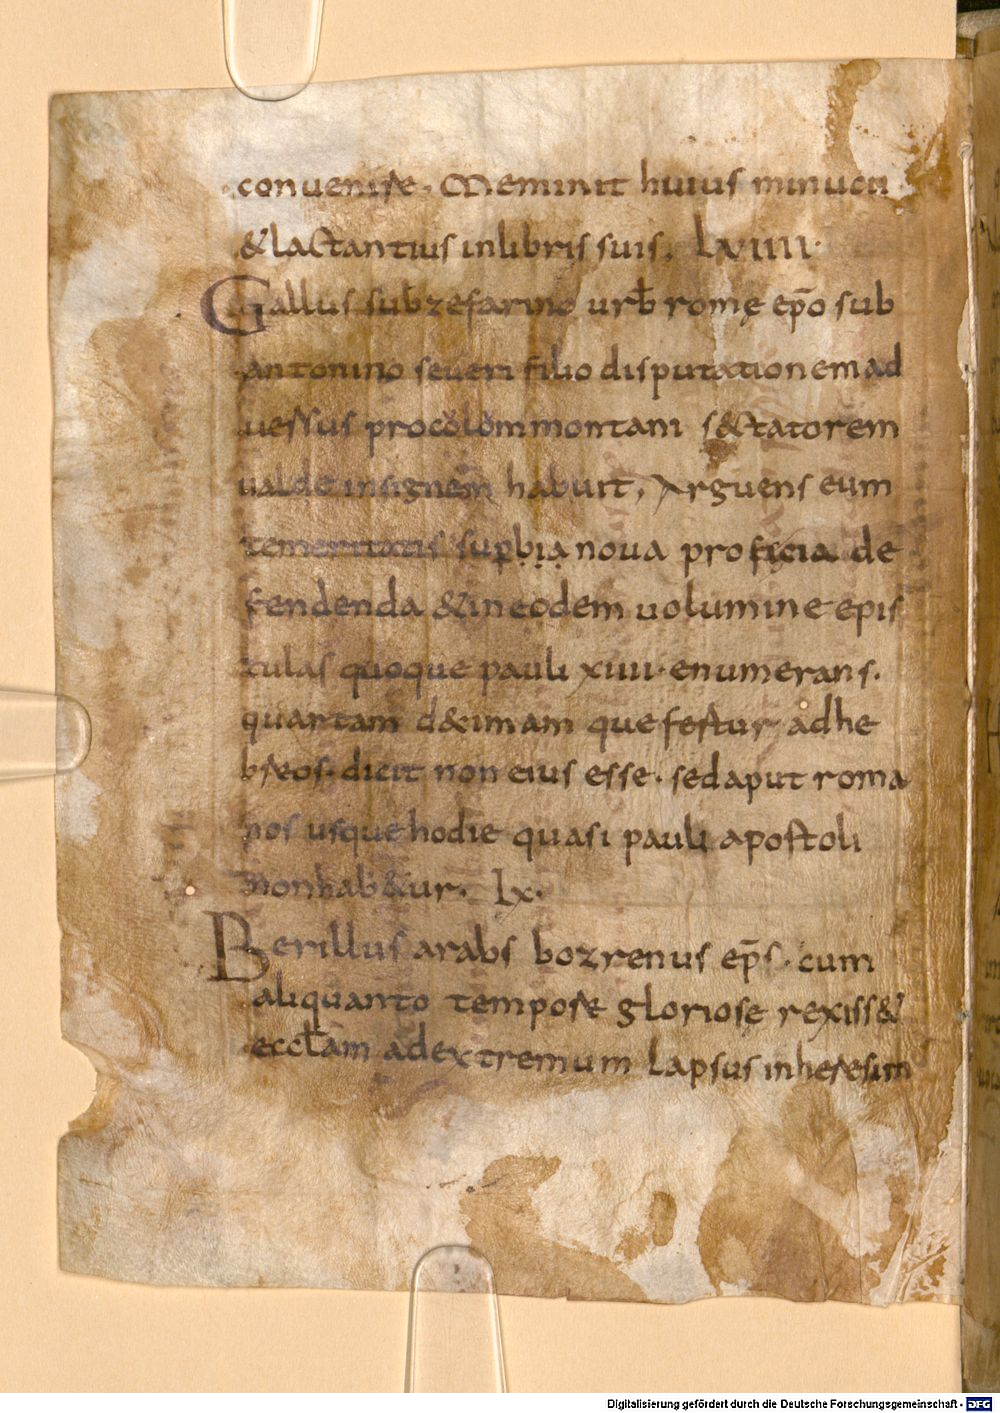 convenire. Meminit huius minucii
&lactantius inlibris suis. lxiiii.
Gallus sub zefarino urb̄ romę ep̄o sub
antonino severi filio disputationem ad
versus procolom montani s&tatorem
valde insignem habuit, Arguens eum
temeritatis supbia nova proficia de
fendenda &ineodem volumine epis
tulas quoque pauli xiiii. enumerans.
quartam d&imam que fertur adhe
breos. dicit non eius esse. sed aput roma
nos usque hodie quasi pauli apostoli
non hab&ur. lx.
Berillus arabs bozrenus ep̄s. cum
aliquanto tempore gloriosę rexiss&
eccl̄am adextremum lapsus inheresim
Digitalisierung gefördert durch die Deutsche Forschungsgemeinschaft - DFG